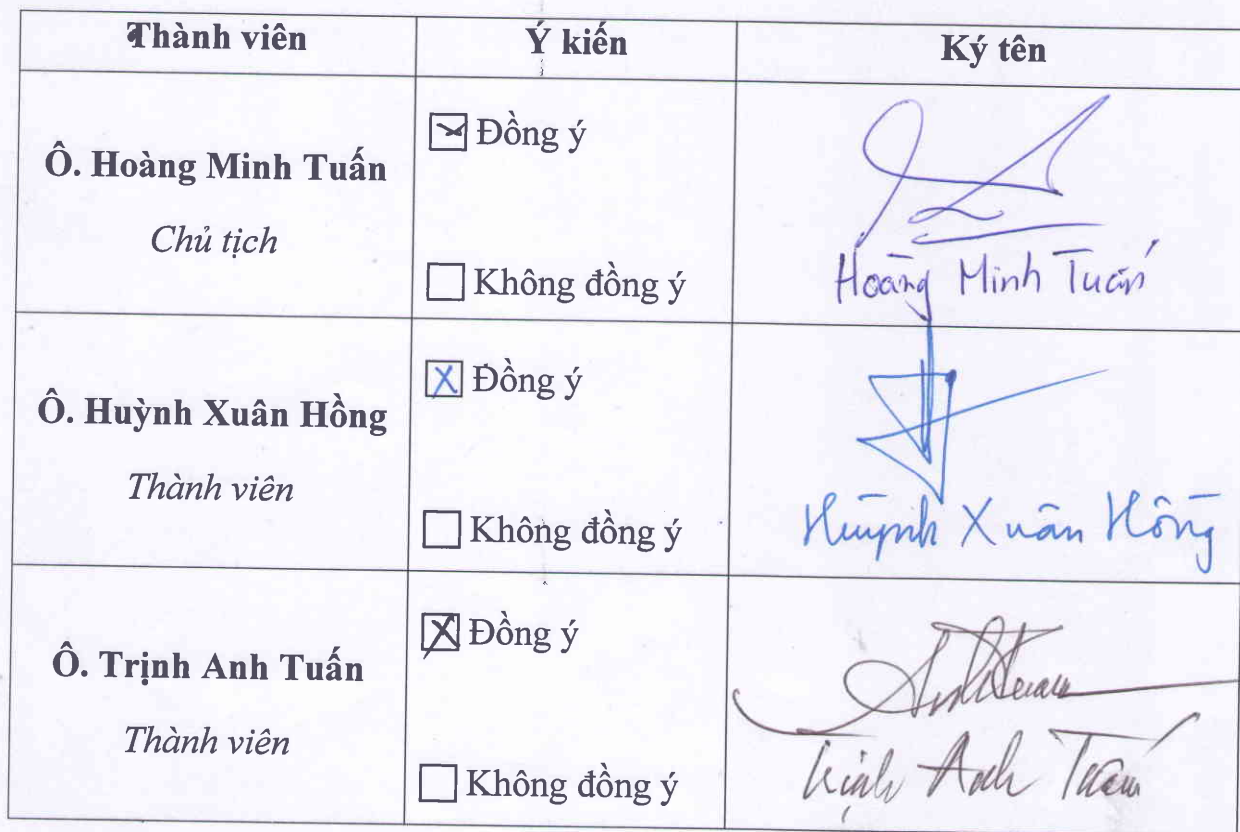 Thành viên
Ý kiến
Ký tên
Ô. Hoàng Minh Tuấn
Chủ tịch
Đồng ý
Không đồng ý
Hoàng Minh Tuấn
Ô. Huỳnh Xuân Hồng
Thành viên
Đồng ý
Không đồng ý
Huỳnh Xuân Hồng
Ô. Trịnh Anh Tuấn
Thành viên
Đồng ý
Không đồng ý
Trịnh Anh Tuấn